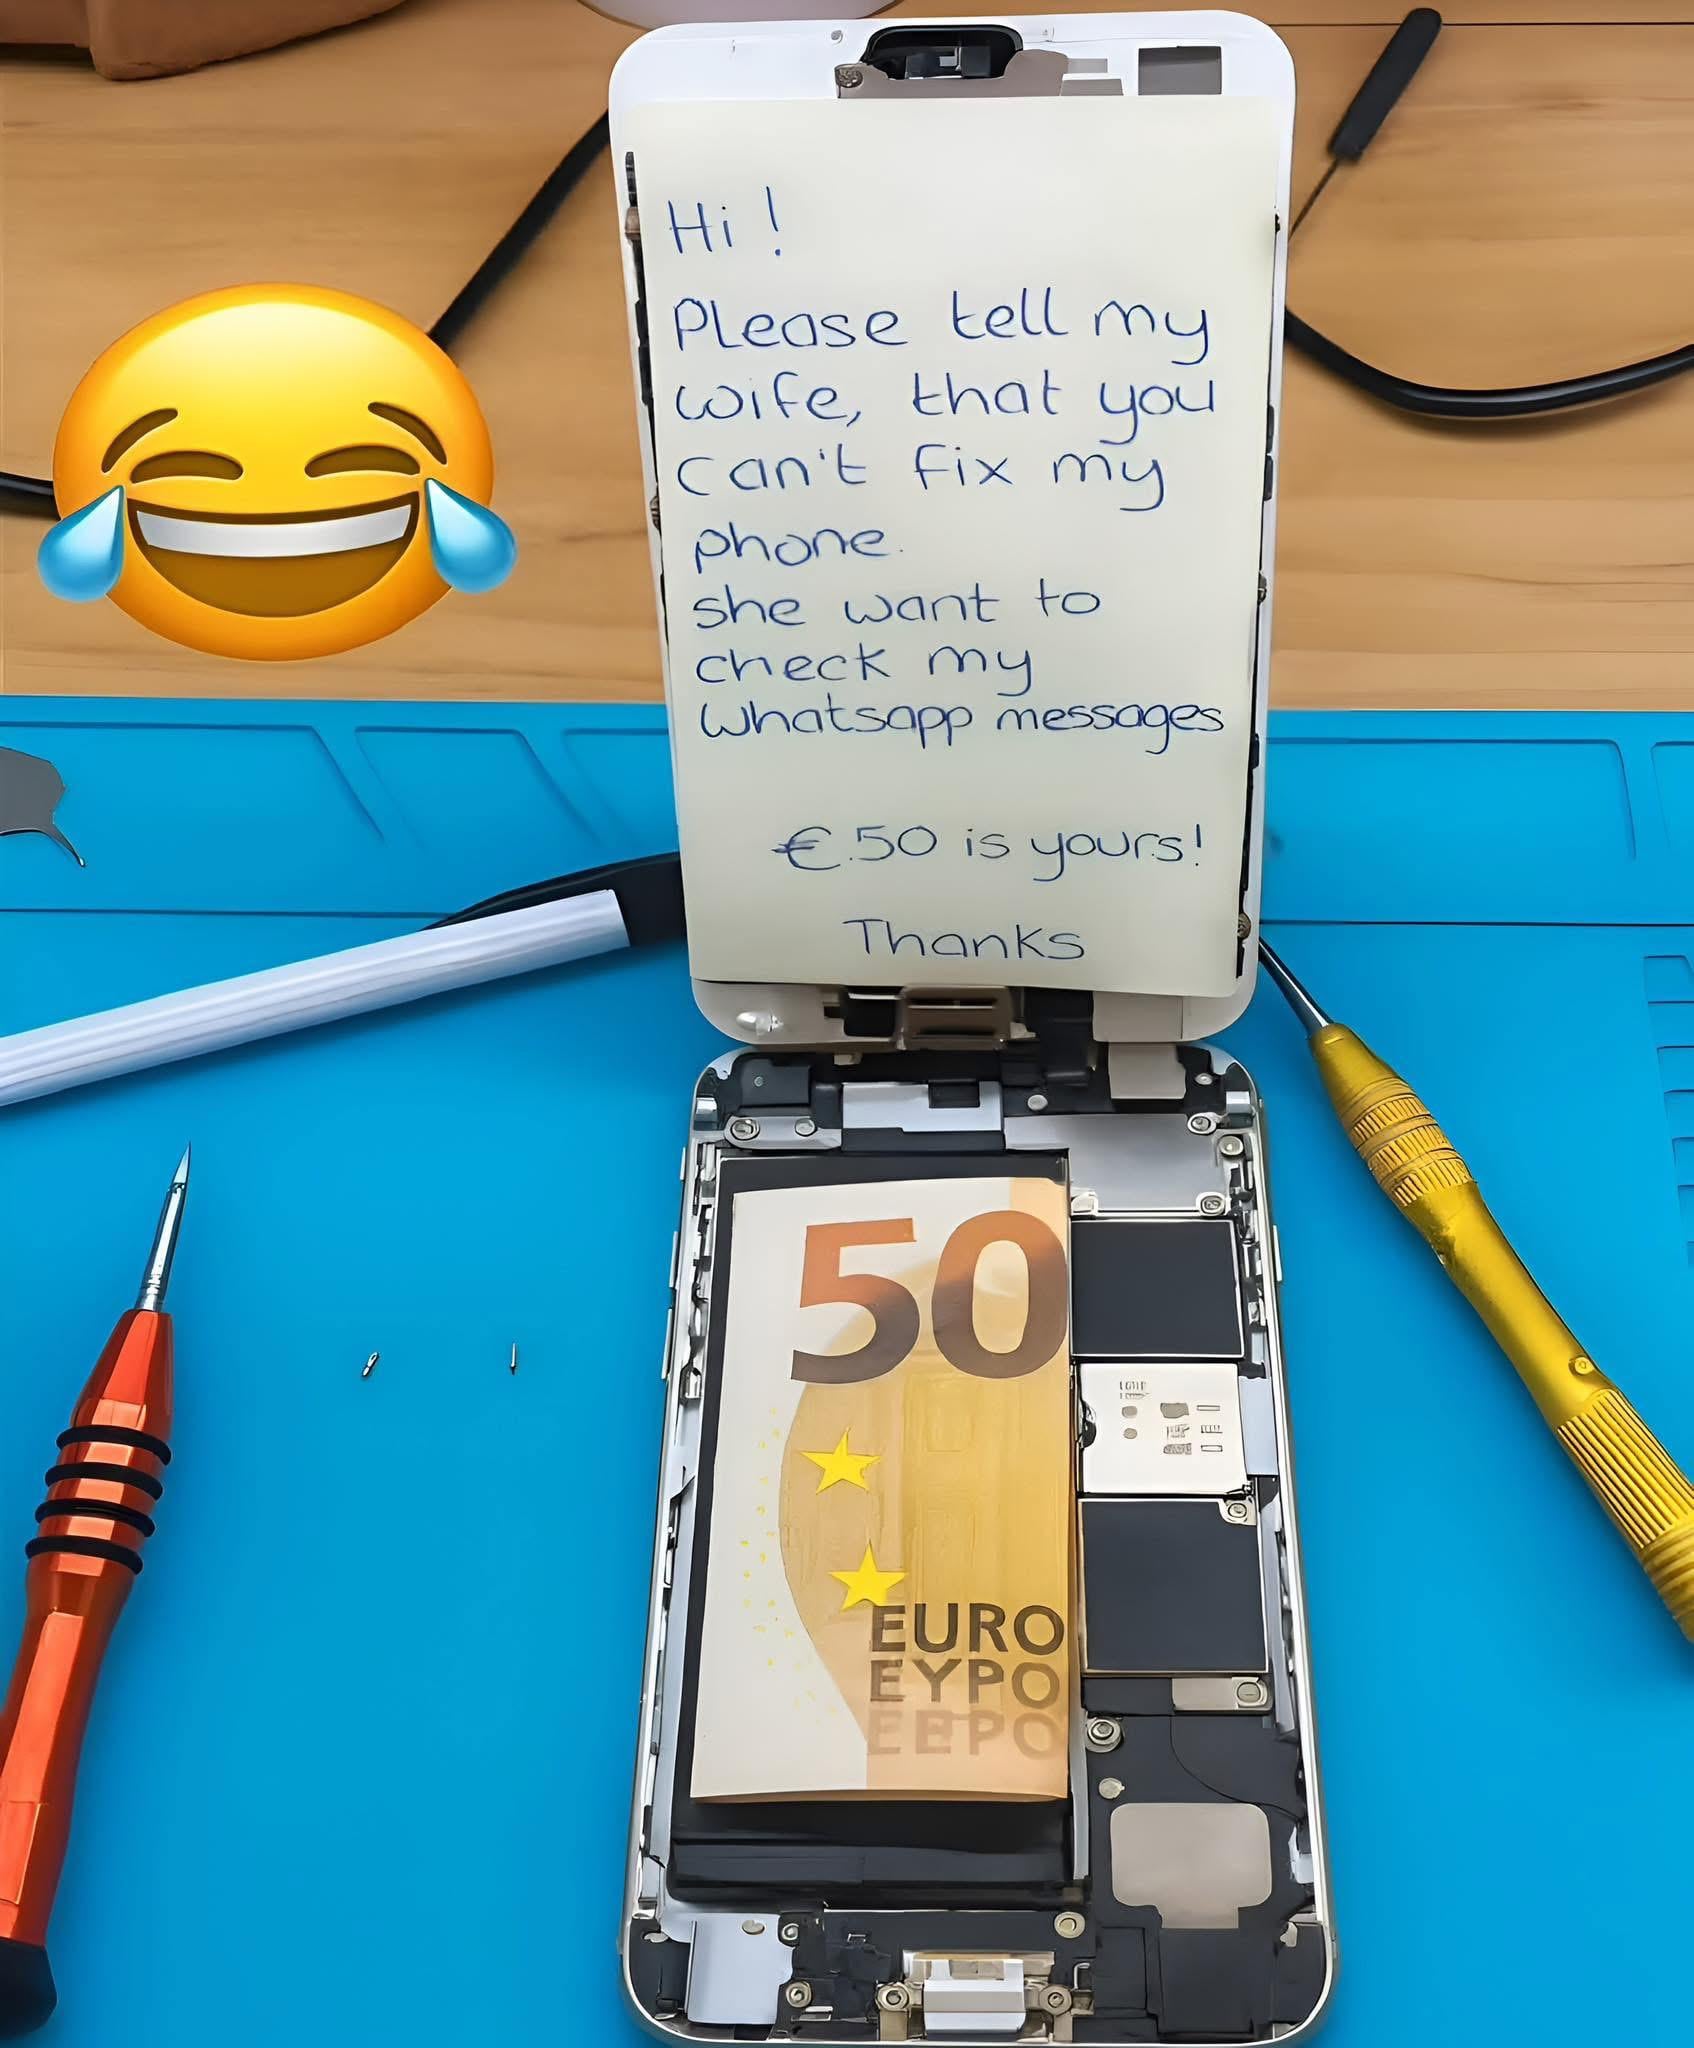 Hi !
Please tell my
wife, that you
can't fix my
phone.
she want to
check my
Whatsapp messages
€.50 is yours!
Thanks
50
EURO
ΕΥΡΩ
ЕВРО